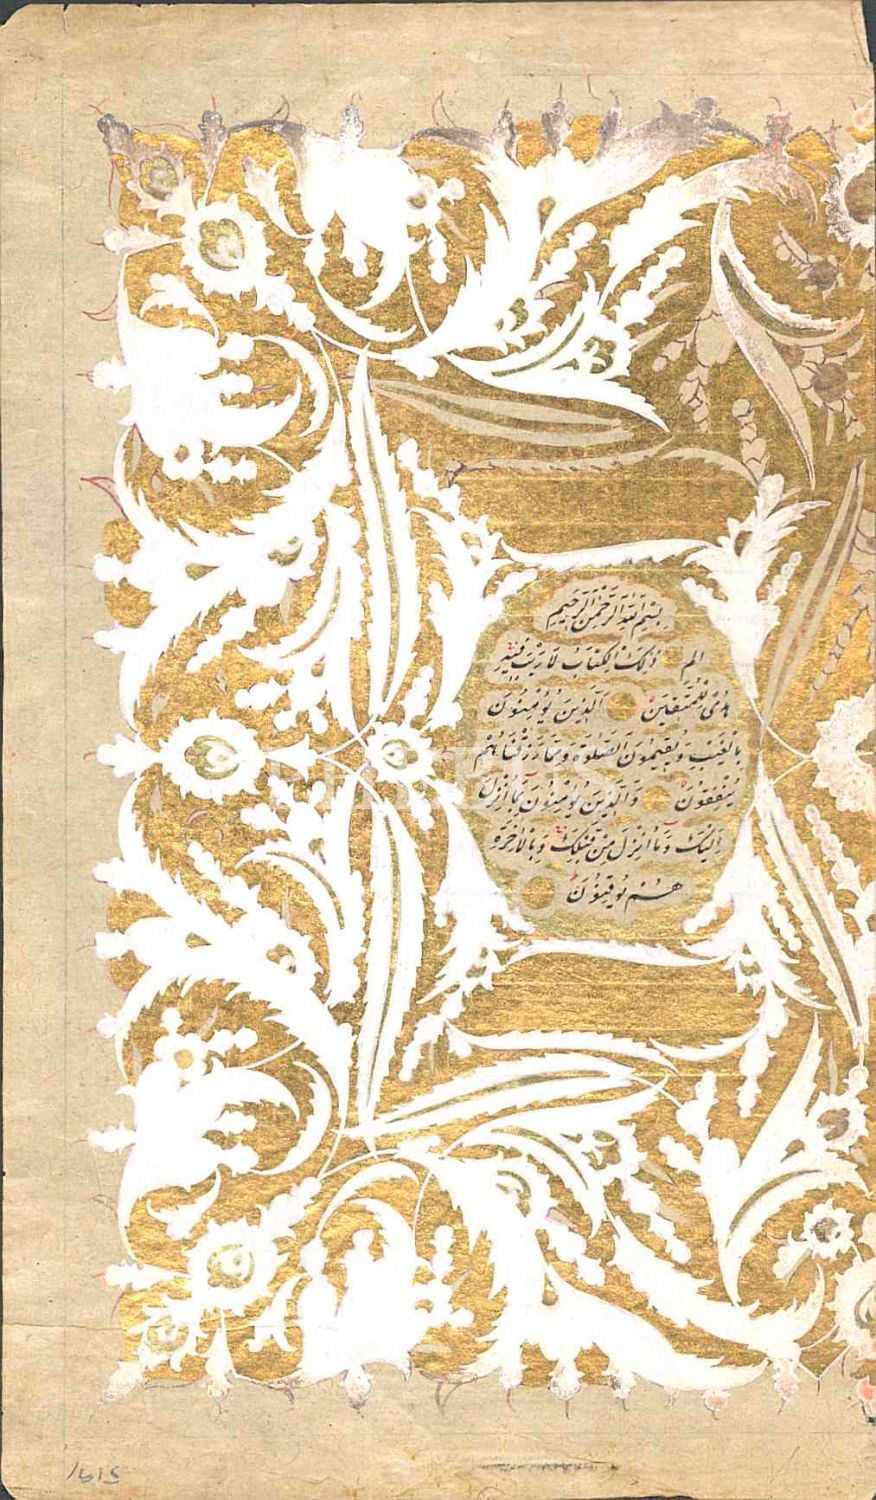 بِسْمِ اللهِ الرَّحْمٰنِ الرَّحِيمِ
الم ذٰلِكَ الْكِتَابُ لَا رَيْبَ فِيهِ
هُدًى لِلْمُتَّقِينَ الَّذِينَ يُؤْمِنُونَ
بِالْغَيْبِ وَيُقِيمُونَ الصَّلٰوةَ وَمِمَّا رَزَقْنَاهُمْ
يُنْفِقُونَ وَالَّذِينَ يُؤْمِنُونَ بِمَا أُنْزِلَ
إِلَيْكَ وَمَا أُنْزِلَ مِنْ قَبْلِكَ وَبِالْاٰخِرَةِ
هُمْ يُوقِنُونَ